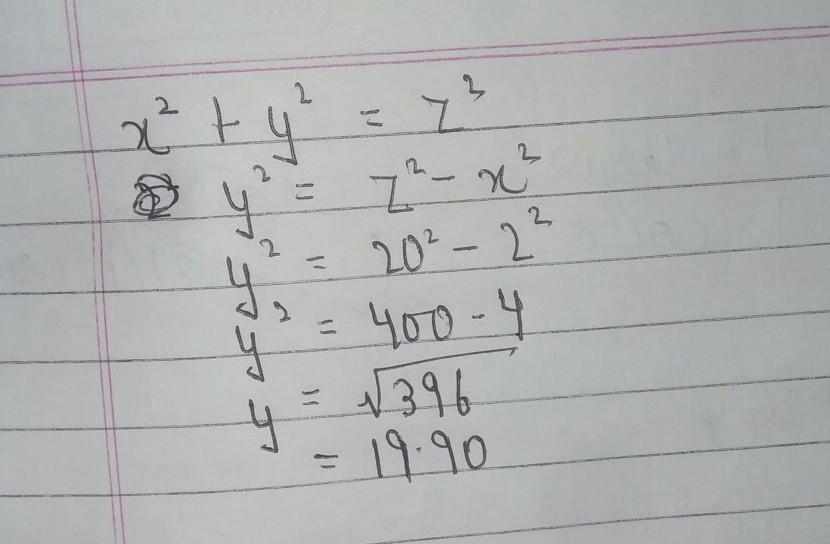 x² + y² = z²
y² = z² - x²
y² = 20² - 2²
y² = 400 - 4
y = √396
= 19.90